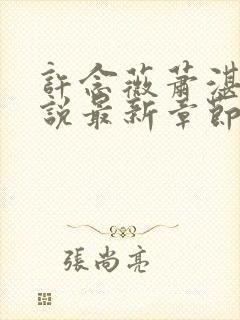 許念薇蕭湛
說最新章節
張尚亮